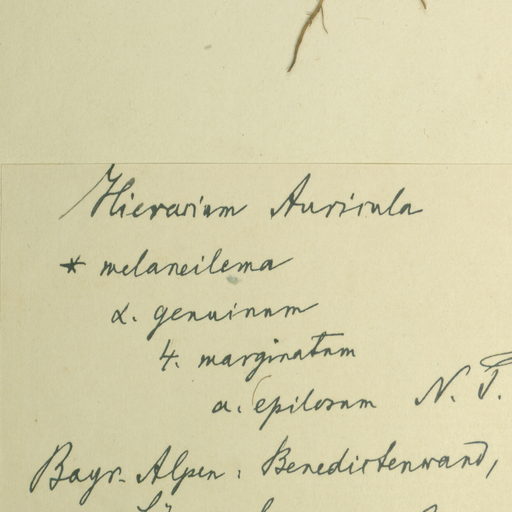 Hieracium Auricula
* melaneilema
α. genuinum
4. marginatum
a. epilosum N. P.
Bayr. Alpen: Benedictenwand,